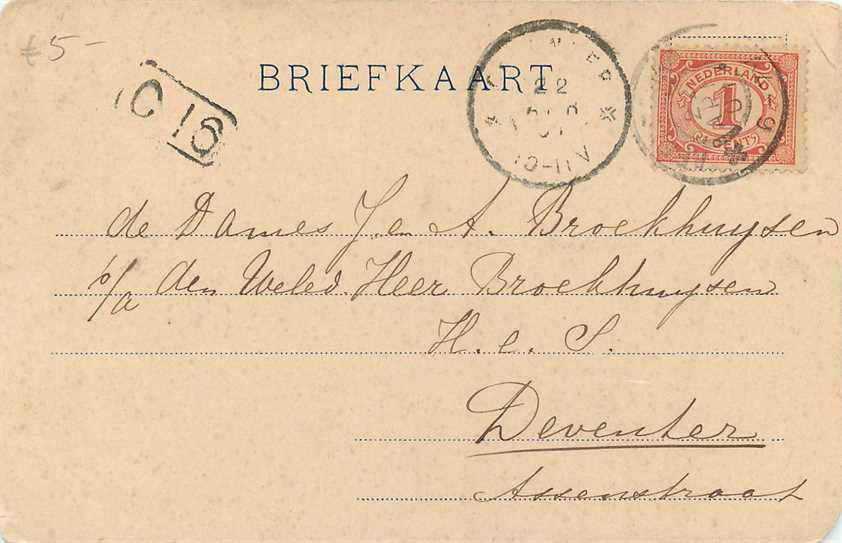 £5-
BRIEFKAART
C 16
22
10-11V
NEDERLAND
1
CENT
de Dames J. en A. Broekhuysen
p/a den Weled. Heer Broekhuysen
H. e. S.
Deventer
Assenstraat